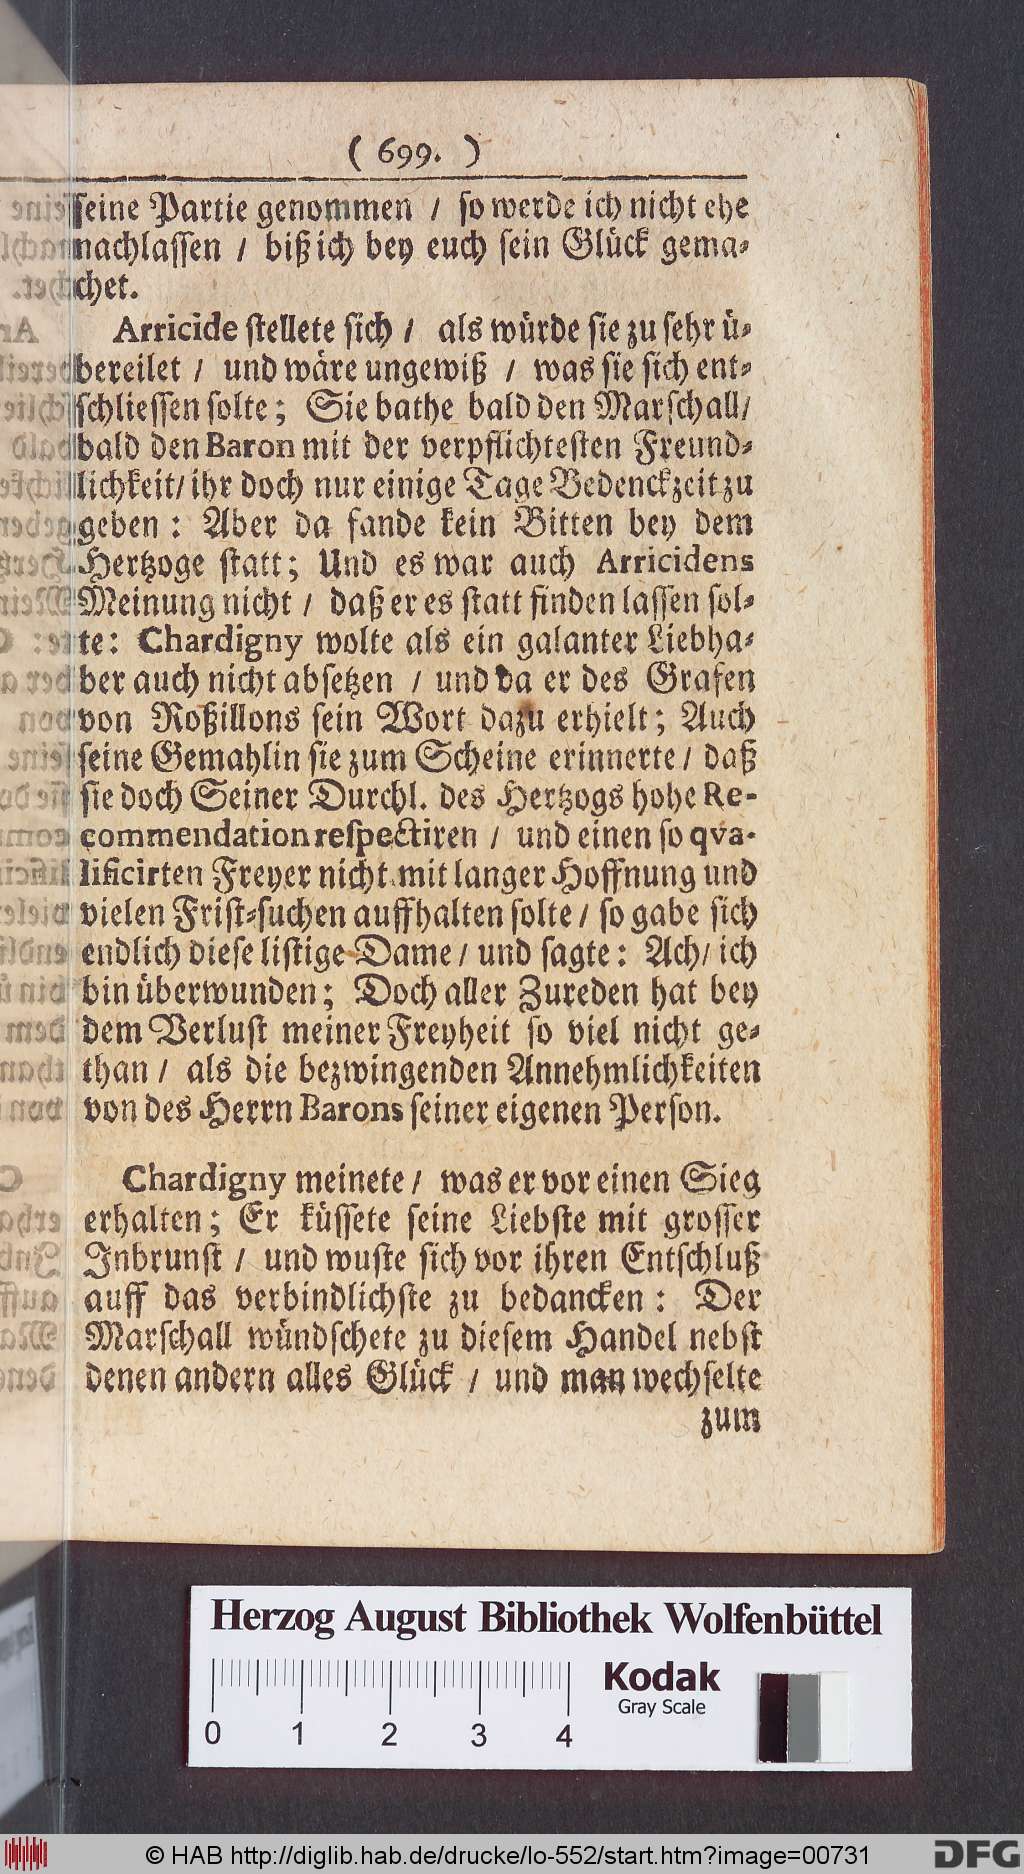 ( 699. )
seine Partie genommen / so werde ich nicht ehe
nachlassen / biß ich bey euch sein Glück gema-
chet.
Arricide stellete sich / als würde sie zu sehr ü-
bereilet / und wäre ungewiß / was sie sich ent-
schliessen solte; Sie bathe bald den Marschall/
bald den Baron mit der verpflichtesten Freund-
lichkeit/ ihr doch nur einige Tage Bedenckzeit zu
geben : Aber da fande kein Bitten bey dem
Hertzoge statt; Und es war auch Arricidens
Meinung nicht / daß er es statt finden lassen sol-
te: Chardigny wolte als ein galanter Liebha-
ber auch nicht absetzen / und da er des Grafen
von Roßillons sein Wort dazu erhielt; Auch
seine Gemahlin sie zum Scheine erinnerte / daß
sie doch Seiner Durchl. des Hertzogs hohe Re-
commendation respectiren / und einen so qva-
lificirten Freyer nicht mit langer Hoffnung und
vielen Frist-suchen auffhalten solte / so gabe sich
endlich diese listige Dame / und sagte: Ach/ ich
bin überwunden; Doch aller Zureden hat bey
dem Verlust meiner Freyheit so viel nicht ge-
than / als die bezwingenden Annehmlichkeiten
von des Herrn Barons seiner eigenen Person.
Chardigny meinete / was er vor einen Sieg
erhalten; Er küssete seine Liebste mit grosser
Inbrunst / und wuste sich vor ihren Entschluß
auff das verbindlichste zu bedancken: Der
Marschall wündschete zu diesem Handel nebst
denen andern alles Glück / und man wechselte
zum
Herzog August Bibliothek Wolfenbüttel
Kodak
Gray Scale
0 1 2 3 4
© HAB http://diglib.hab.de/drucke/lo-552/start.htm?image=00731
DFG